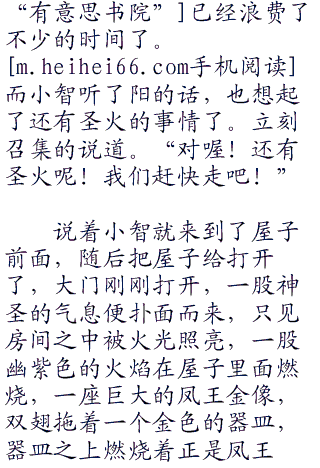 “有意思书院”]已经浪费了
不少的时间了。
[m.heihei66.com手机阅读]
而小智听了阳的话，也想起
了还有圣火的事情了。立刻
召集的说道。“对喔！还有
圣火呢！我们赶快走吧！”
说着小智就来到了屋子
前面，随后把屋子给打开
了，大门刚刚打开，一股神
圣的气息便扑面而来，只见
房间之中被火光照亮，一股
幽紫色的火焰在屋子里面燃
烧，一座巨大的凤王金像，
双翅拖着一个金色的器皿，
器皿之上燃烧着正是凤王